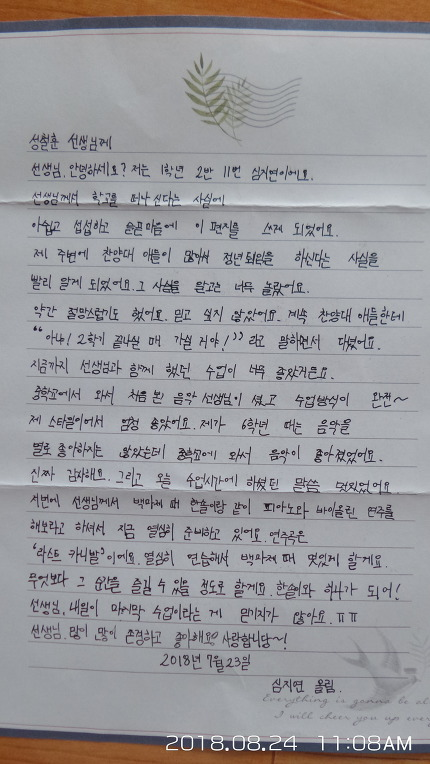 성철훈 선생님께
선생님. 안녕하세요? 저는 1학년 2반 11번 심지연이에요.
선생님께서 학교를 떠나신다는 사실에
아쉽고 섭섭하고 슬픈 마음에 이 편지를 쓰게 되었어요.
제 주변에 찬양대 애들이 많아서 정년퇴임을 하신다는 사실을
빨리 알게 되었어요. 그 사실을 알고는 너무 놀랐어요.
약간 절망스럽기도 했어요. 믿고 싶지 않았어요. 계속 찬양대 애들한테
"아냐! 2학기 끝나실 때 가실 거야!" 라고 말하면서 다녔어요.
지금까지 선생님과 함께 했던 수업이 너무 좋았거든요.
중학교에서 와서 처음 본 음악 선생님이 셨고 수업방식이 완전~
제 스타일이어서 엄청 좋았어요. 제가 6학년 때는 음악을
별로 좋아하지는 않았는데 중학교에 와서 음악이 좋아졌었어요.
진짜 감사해요. 그리고 오늘 수업시간에 하셨던 말씀 멋있었어요.
저번에 선생님께서 백마제 때 한솔이랑 같이 피아노와 바이올린 연주를
해보라고 하셔서 지금 열심히 준비하고 있어요. 연주곡은
'라스트 카니발'이에요. 열심히 연습해서 백마제 때 멋있게 할게요.
무엇보다 그 순간을 즐길 수 있을 정도로 할게요. 한솔이와 하나가 되어!
선생님. 내일이 마지막 수업이라는 게 믿기지가 않아요. ㅠㅠ
선생님. 많이 많이 존경하고 좋아해요♡ 사랑합니당~!
2018년 7월 23일
심지연 올림.
Everything is gonna be al
I will cheer you up ever
2018.08.24 11:08AM